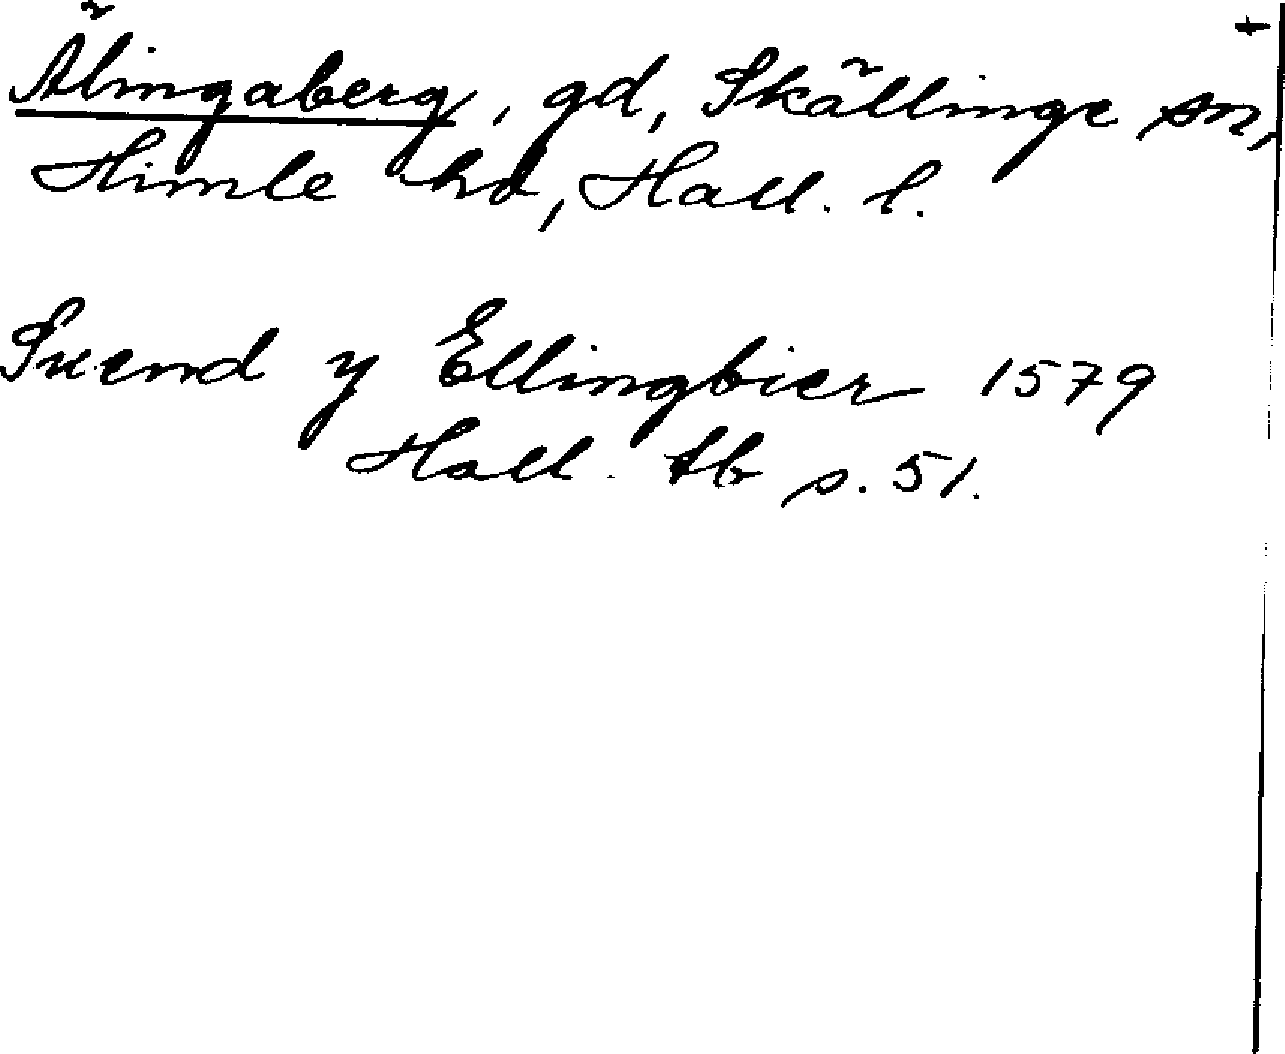 Älingaberg, gd, Skällinge sn,
Himle hd, Hall. l.
Suend y Ellingbier 1579
Hall. tb s. 51.